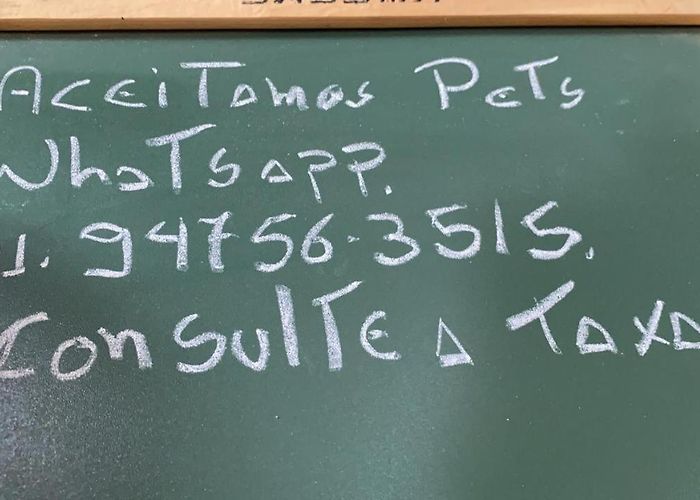 Aceitamos Pets
WhaTsapp.
1. 94756-3515.
Consulte a Taxa